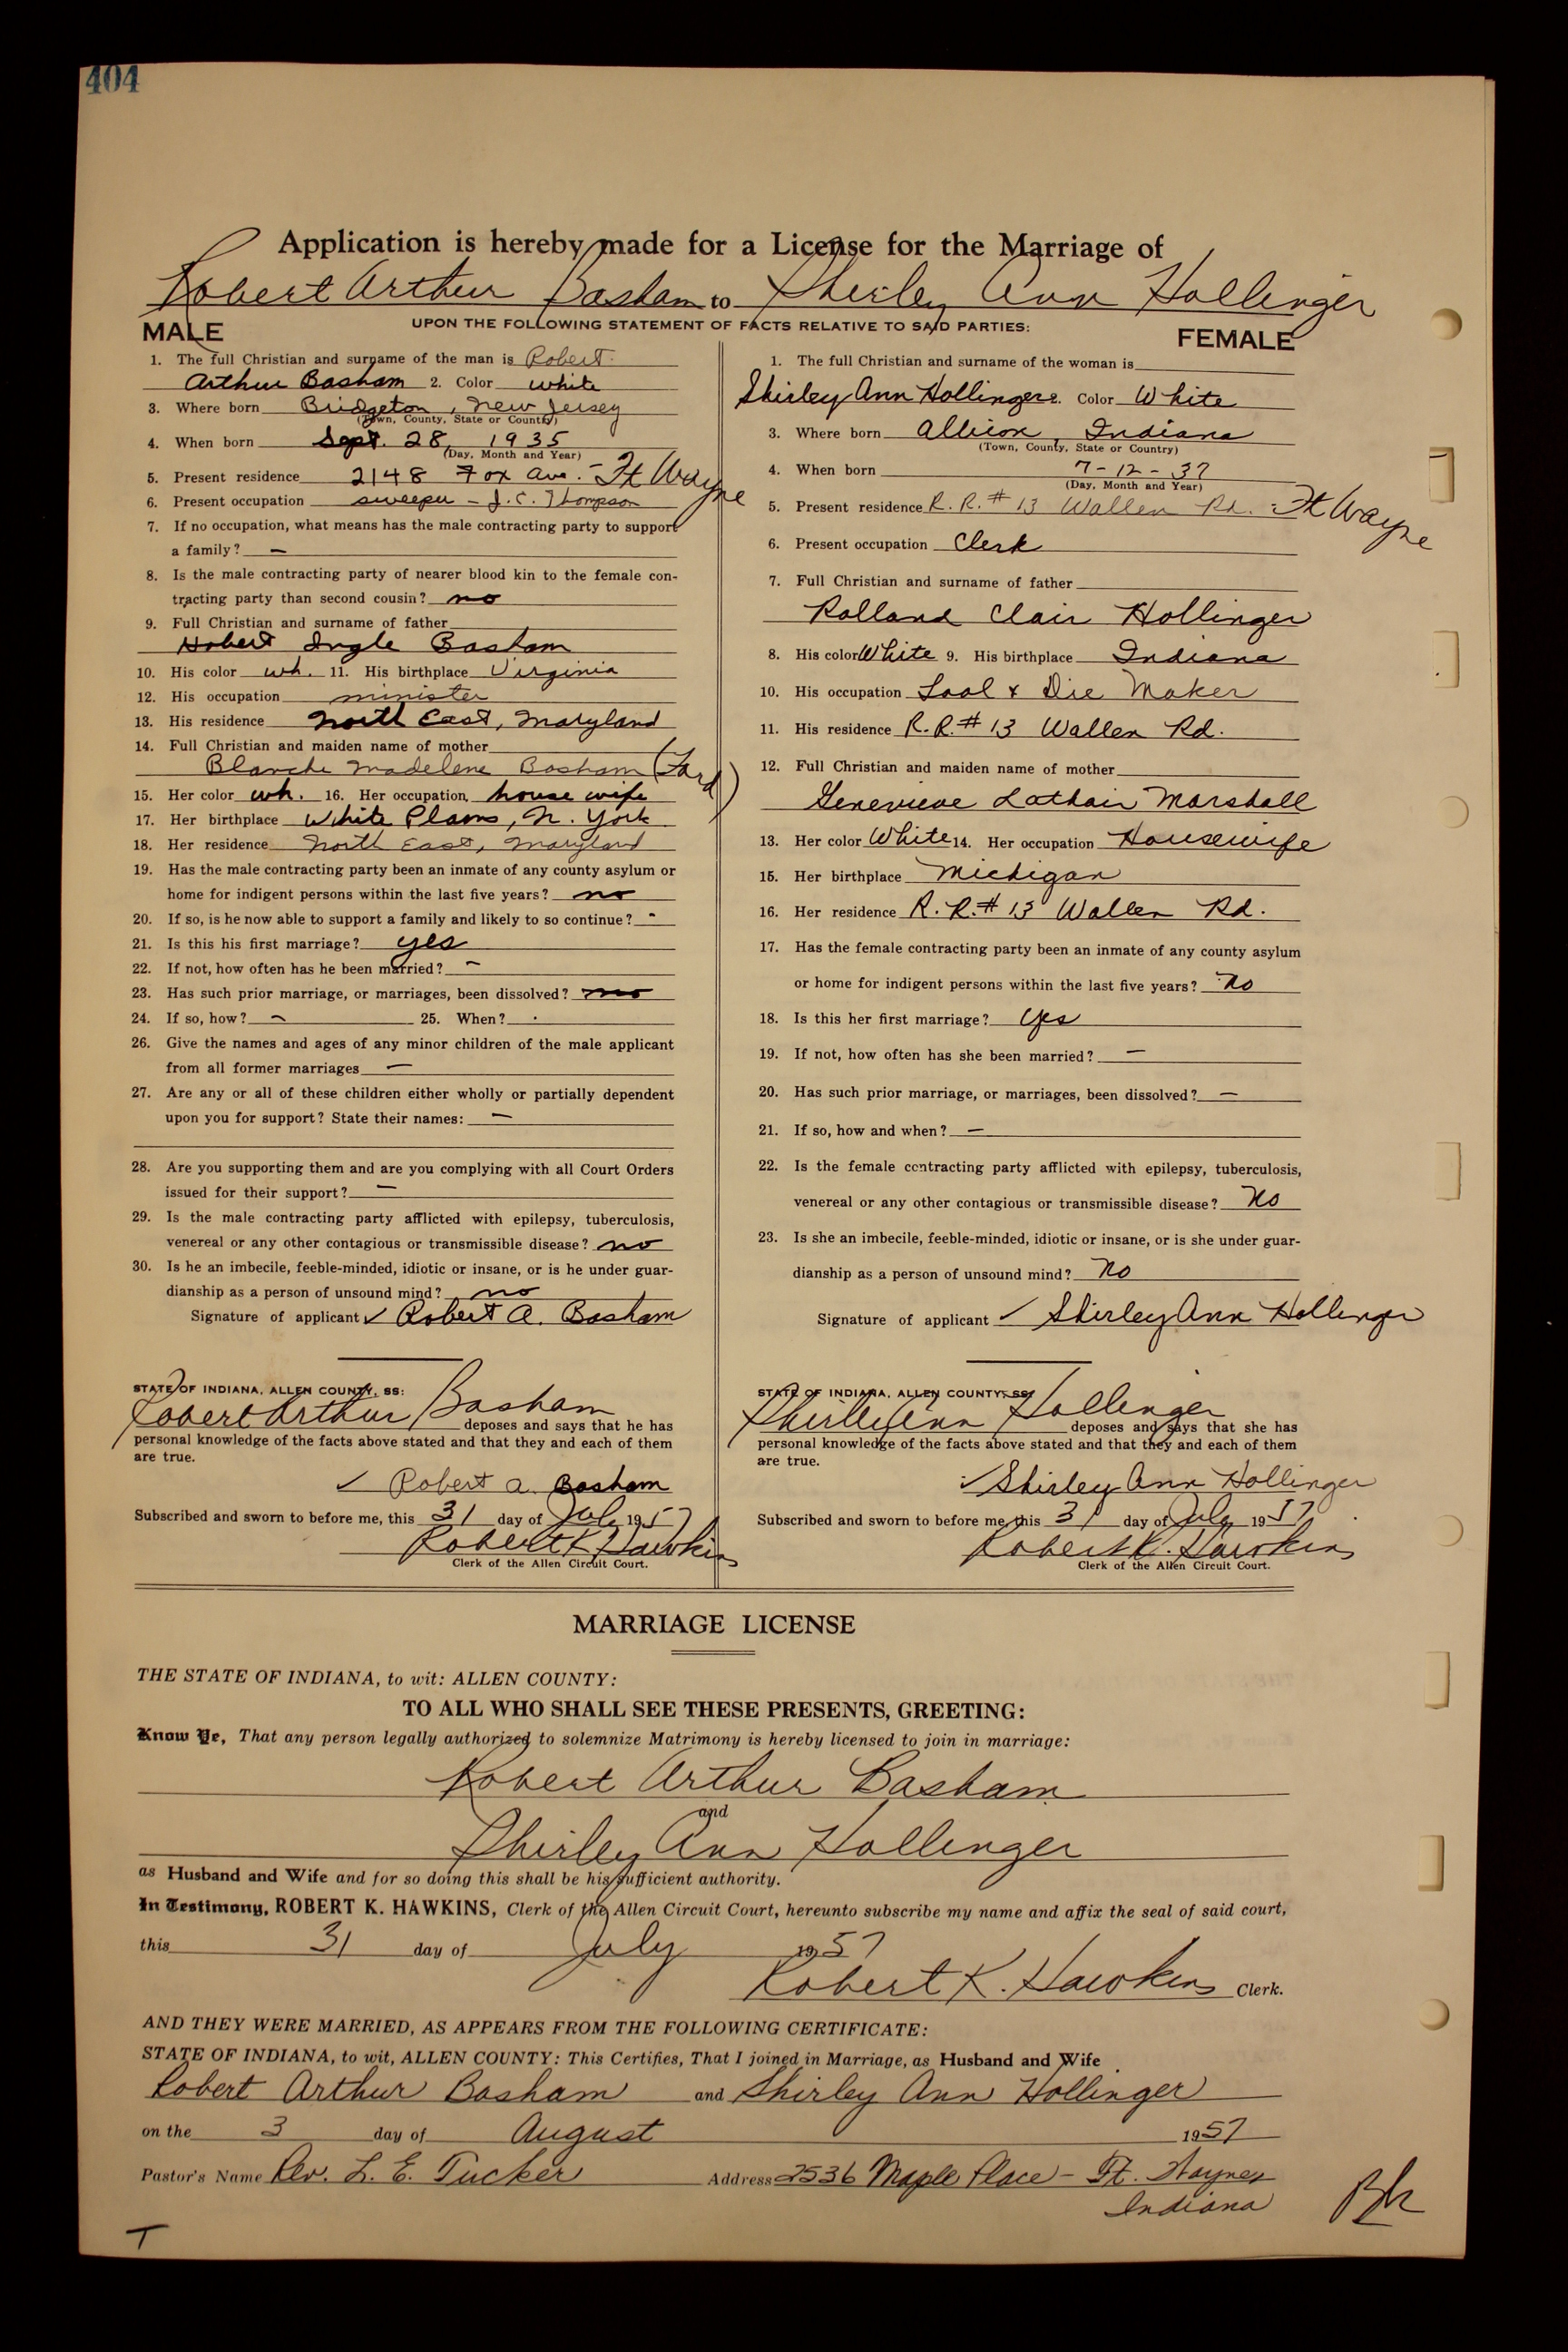 404
Application is hereby made for a License for the Marriage of
Robert Arthur Basham to Shirley Ann Hollinger
UPON THE FOLLOWING STATEMENT OF FACTS RELATIVE TO SAID PARTIES:
MALE
1. The full Christian and surname of the man is Robert
Arthur Basham 2. Color white
3. Where born Bridgeton, New Jersey
(Town, County, State or Country)
4. When born Sept. 28, 1935
(Day, Month and Year)
5. Present residence 2148 Fox Ave. - Ft Wayne
6. Present occupation sweeper - J.C. Thompson
7. If no occupation, what means has the male contracting party to support
a family? —
8. Is the male contracting party of nearer blood kin to the female con-
tracting party than second cousin? no
9. Full Christian and surname of father
Hobert Ingle Basham
10. His color wh. 11. His birthplace Virginia
12. His occupation minister
13. His residence North East, Maryland
14. Full Christian and maiden name of mother
Blanche Madelene Basham
15. Her color wh. 16. Her occupation house wife
17. Her birthplace White Plains, N. York
18. Her residence North East, Maryland
19. Has the male contracting party been an inmate of any county asylum or
home for indigent persons within the last five years? no
20. If so, is he now able to support a family and likely to so continue? -
21. Is this his first marriage? yes
22. If not, how often has he been married? —
23. Has such prior marriage, or marriages, been dissolved? no
24. If so, how? — 25. When? .
26. Give the names and ages of any minor children of the male applicant
from all former marriages —
27. Are any or all of these children either wholly or partially dependent
upon you for support? State their names: —
28. Are you supporting them and are you complying with all Court Orders
issued for their support? —
29. Is the male contracting party afflicted with epilepsy, tuberculosis,
venereal or any other contagious or transmissible disease? no
30. Is he an imbecile, feeble-minded, idiotic or insane, or is he under guar-
dianship as a person of unsound mind? no
Signature of applicant ✓ Robert A. Basham
STATE OF INDIANA, ALLEN COUNTY, SS:
Robert Arthur Basham deposes and says that he has
personal knowledge of the facts above stated and that they and each of them
are true.
✓ Robert A. Basham
Subscribed and sworn to before me, this 31 day of July 1957
Robert K. Hawkins
Clerk of the Allen Circuit Court.
FEMALE
1. The full Christian and surname of the woman is
Shirley Ann Hollinger 2. Color White
3. Where born Albion, Indiana
(Town, County, State or Country)
4. When born 7-12-37
(Day, Month and Year)
5. Present residence R.R.# 13 Wallen Rd. Ft Wayne
6. Present occupation Clerk
7. Full Christian and surname of father
Rolland Clair Hollinger
8. His color White 9. His birthplace Indiana
10. His occupation Tool & Die Maker
11. His residence R.R.# 13 Wallen Rd.
12. Full Christian and maiden name of mother
Genevieve Lathair Marshall
13. Her color White 14. Her occupation Housewife
15. Her birthplace Michigan
16. Her residence R.R.# 13 Wallen Rd.
17. Has the female contracting party been an inmate of any county asylum
or home for indigent persons within the last five years? No
18. Is this her first marriage? yes
19. If not, how often has she been married? —
20. Has such prior marriage, or marriages, been dissolved? —
21. If so, how and when? —
22. Is the female contracting party afflicted with epilepsy, tuberculosis,
venereal or any other contagious or transmissible disease? No
23. Is she an imbecile, feeble-minded, idiotic or insane, or is she under guar-
dianship as a person of unsound mind? No
Signature of applicant ✓ Shirley Ann Hollinger
STATE OF INDIANA, ALLEN COUNTY, SS:
Shirley Ann Hollinger deposes and says that she has
personal knowledge of the facts above stated and that they and each of them
are true.
✓ Shirley Ann Hollinger
Subscribed and sworn to before me, this 31 day of July 1957
Robert K. Hawkins
Clerk of the Allen Circuit Court.
MARRIAGE LICENSE
THE STATE OF INDIANA, to wit: ALLEN COUNTY:
TO ALL WHO SHALL SEE THESE PRESENTS, GREETING:
Know Ye, That any person legally authorized to solemnize Matrimony is hereby licensed to join in marriage:
Robert Arthur Basham
and
Shirley Ann Hollinger
as Husband and Wife and for so doing this shall be his sufficient authority.
In Testimony, ROBERT K. HAWKINS, Clerk of the Allen Circuit Court, hereunto subscribe my name and affix the seal of said court,
this 31 day of July 1957
Robert K. Hawkins Clerk.
AND THEY WERE MARRIED, AS APPEARS FROM THE FOLLOWING CERTIFICATE:
STATE OF INDIANA, to wit, ALLEN COUNTY: This Certifies, That I joined in Marriage, as Husband and Wife
Robert Arthur Basham and Shirley Ann Hollinger
on the 3 day of August 1957
Pastor's Name Rev. L. E. Tucker Address 2536 Maple Place - Ft. Wayne
Indiana
T